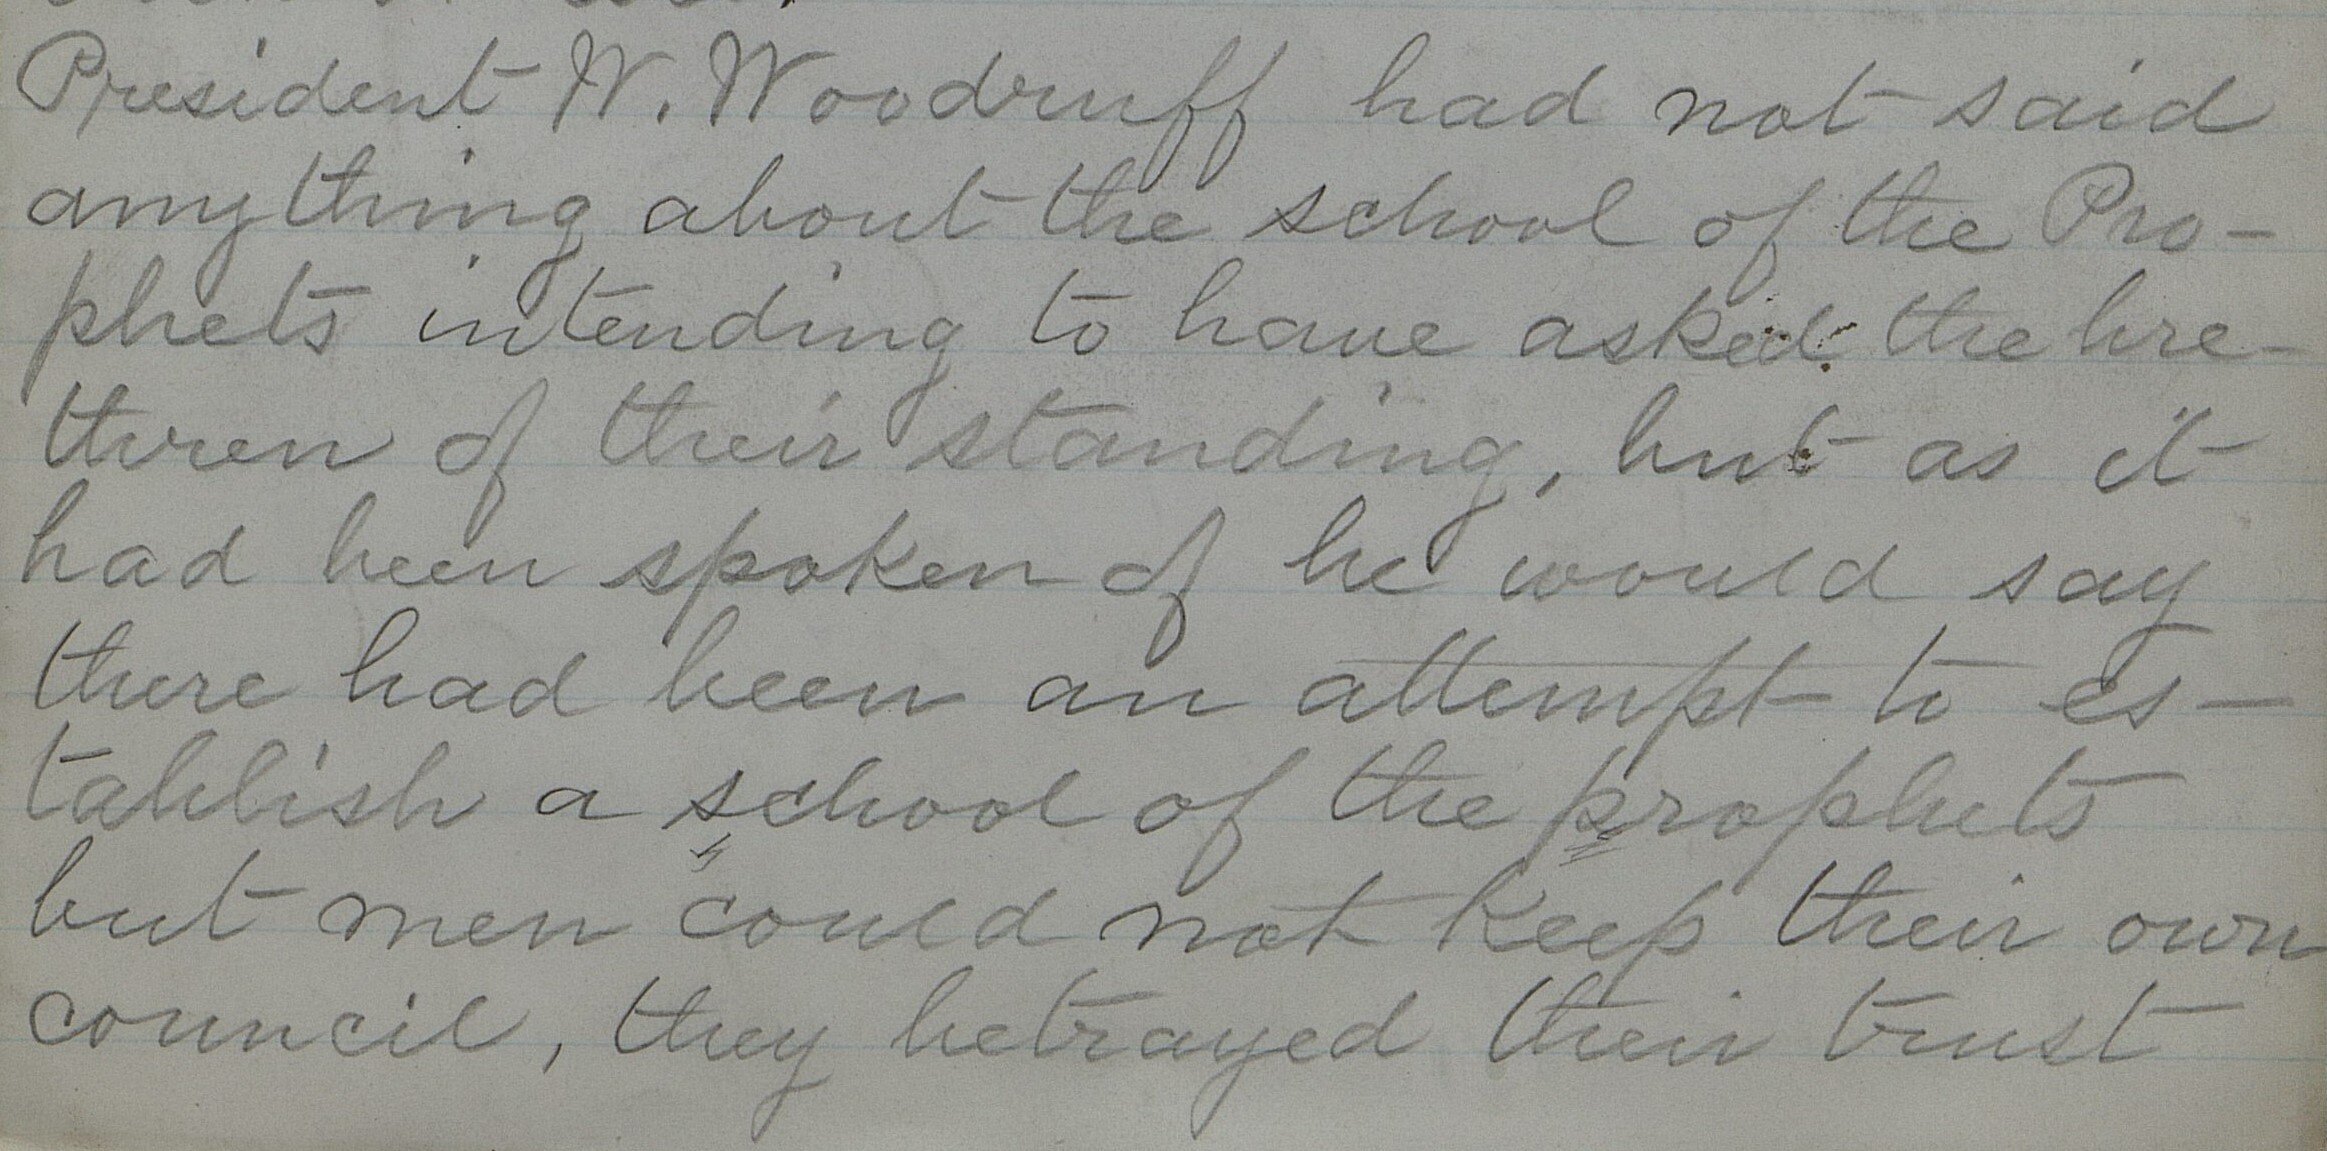 President W. Woodruff had not said
anything about the school of the Pro-
phets intending to have asked the bre-
thren of their standing, but as it
had been spoken of he would say
there had been an attempt to es-
tablish a school of the prophets
but men could not keep their own
council, they betrayed their trust